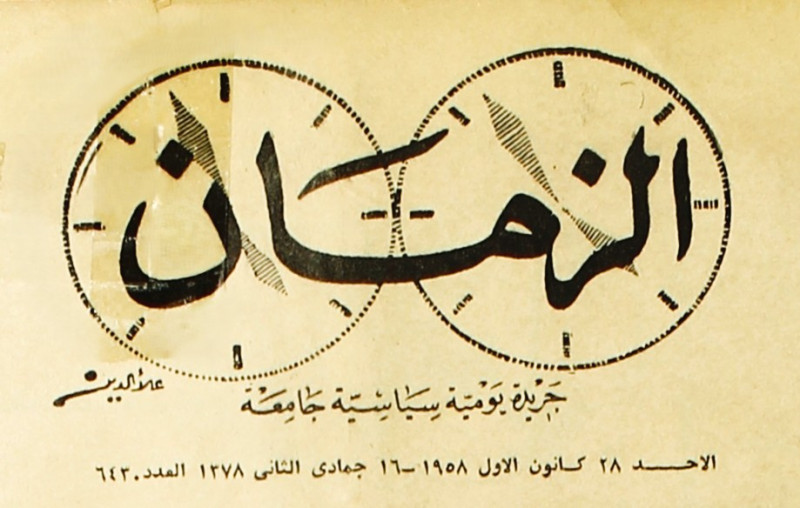 الزمان
جريدة يومية سياسية جامعة
علاءالدين
الاحد ٢٨ كانون الاول ١٩٥٨ -١٦ جمادى الثانى ١٣٧٨ العدد ٦٤٣٠